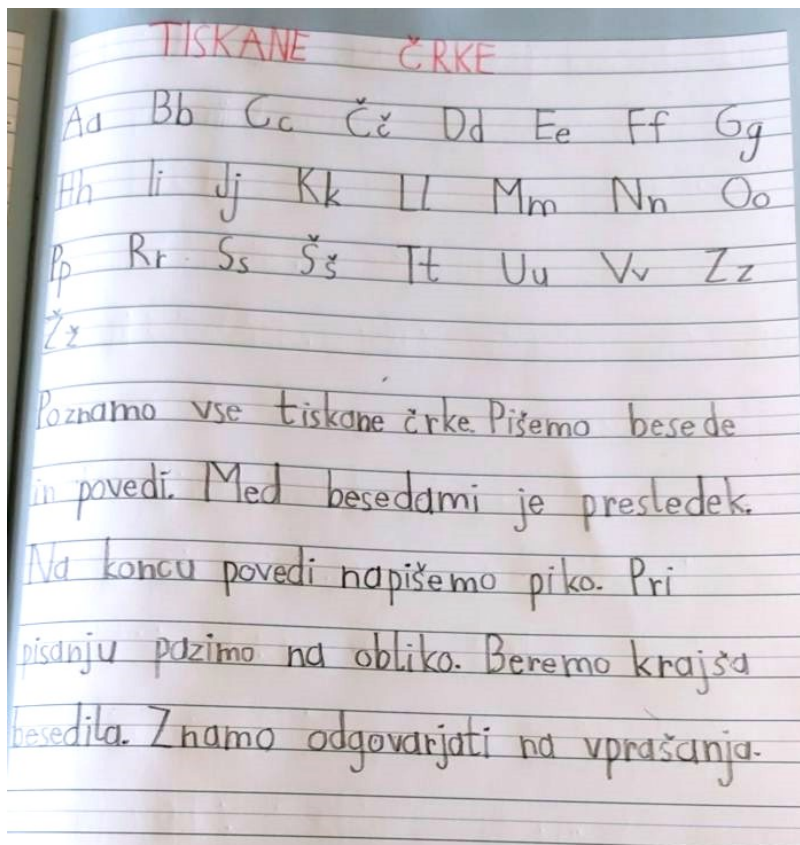 TISKANE ČRKE
Aa Bb Cc Čč Dd Ee Ff Gg
Hh Ii Jj Kk Ll Mm Nn Oo
Pp Rr Ss Šš Tt Uu Vv Zz
Žž
Poznamo vse tiskane črke. Pišemo besede
in povedi. Med besedami je presledek.
Na koncu povedi napišemo piko. Pri
pisanju pazimo na obliko. Beremo krajša
besedila. Znamo odgovarjati na vprašanja.